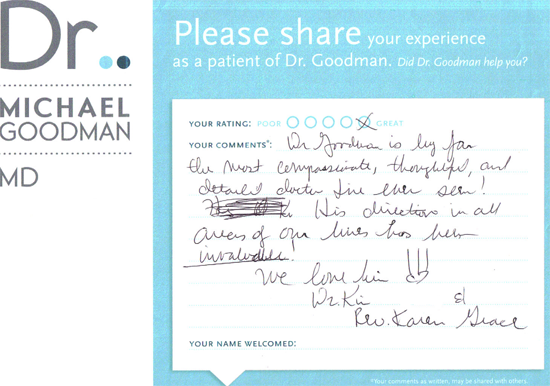 Dr..
MICHAEL
GOODMAN
MD
Please share your experience
as a patient of Dr. Goodman. Did Dr. Goodman help you?
YOUR RATING: POOR GREAT
YOUR COMMENTS*: Dr Goodman is by far
the most compassionate, thoughtful, and
detailed doctor I've ever seen!
His direction in all
areas of our lives has been
invaluable!
We love him !!
Dr. Kin &
Rev. Karen Grace
YOUR NAME WELCOMED:
*Your comments as written, may be shared with others.